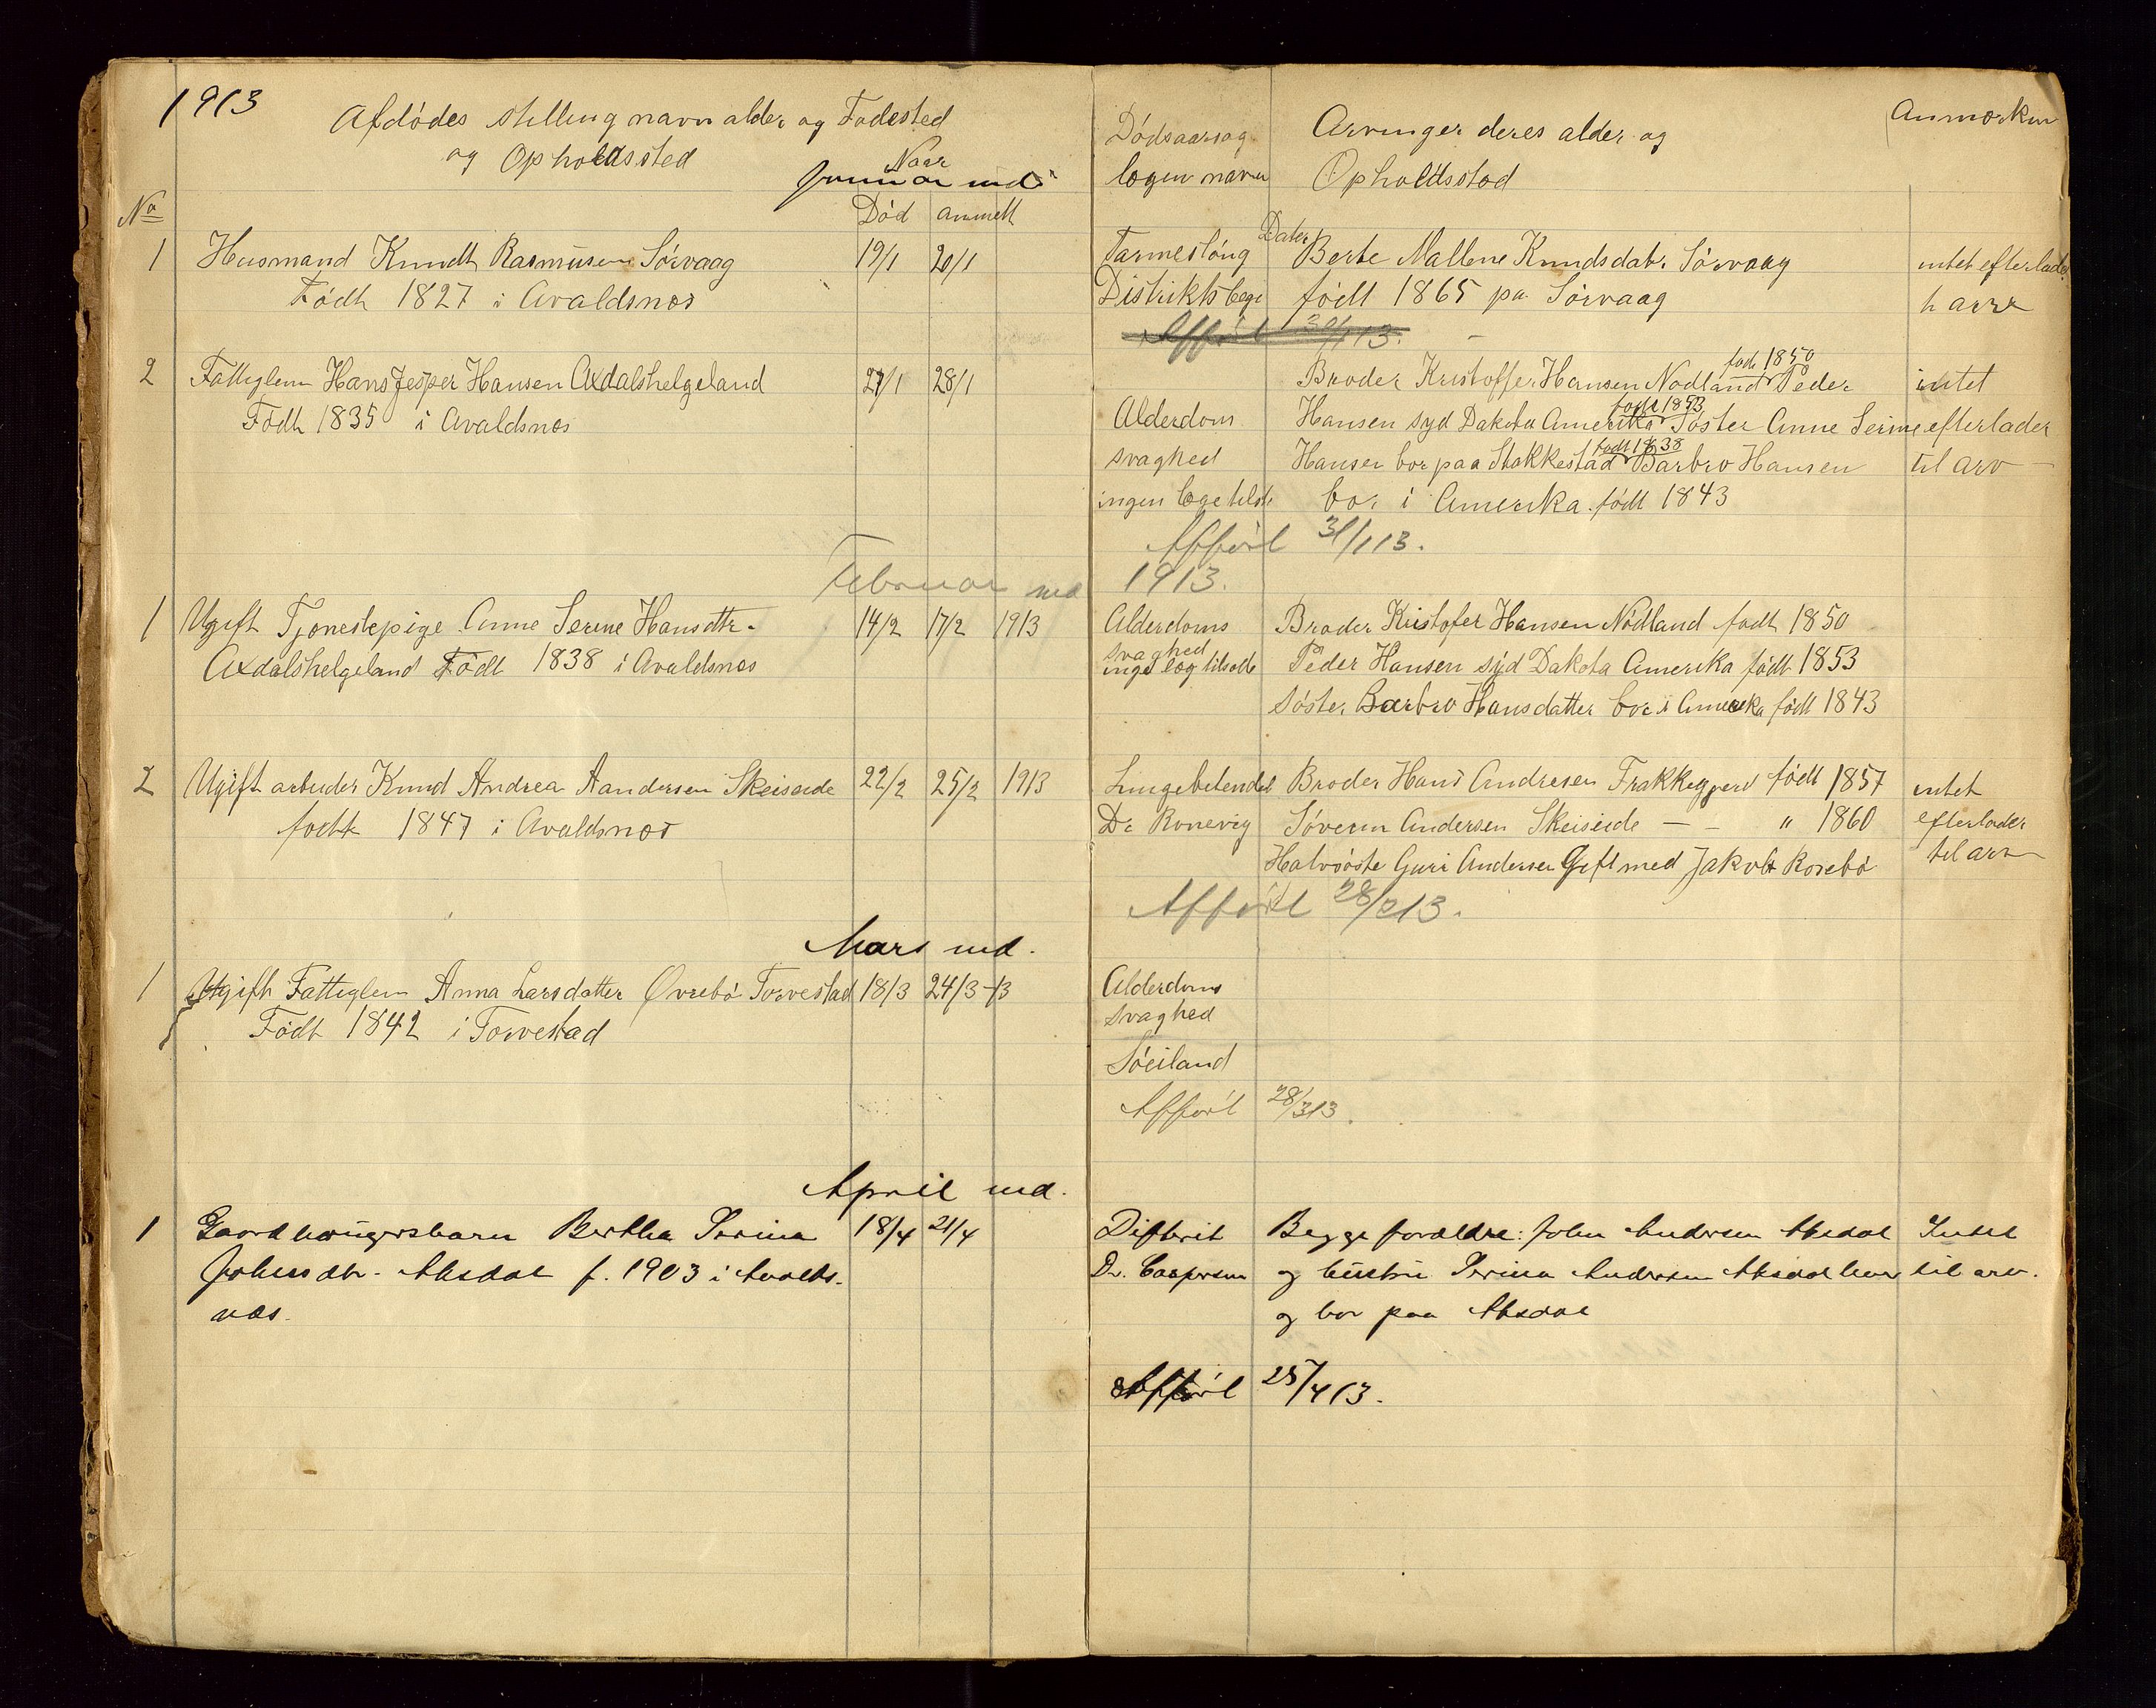 1913
Afdødes stilling navn alder og Fødested
og Opholdssted
Naar
Januar md
No
Død anmelt
1 Husmand Knudt Rasmusen Sörvaag 19/1 20/1
Född 1827 i Avaldsnæs
2 Fattiglem Hans Jesper Hansen Axdalshelgeland 27/1 28/1
Födt 1835 i Avaldsnæs
Februar md
1 Ugift Tjenestepige Anne Serine Hansdttr. 14/2 17/2 1913
Axdalshelgeland Födt 1838 i Avaldsnæs
2 Ugift arbeider Knud Andrea Aandersen Skeiseide 22/2 25/2 1913
født 1847 i Avaldsnæs
Mars md.
1 Ugift Fattiglem Anna Larsdatter Øvrebö Torvestad 18/3 24/3-13
Födt 1842 i Torvestad
April md.
1 Gaardbrugersbarn Bertha Serina 18/4 21/4
Johnsdtr. Aksdal f. 1903 i Avalds-
næs.
Dødsaarsag
lægen navn
Arvinger deres alder og
Opholdssted
Anmærkn
Tarmeslöng Dater Berte Mallene Knudsdatr Sörvaag intet efterlader
Distriktslæge födt 1865 paa Sörvaag
Afført 30/1 13.
født 1850
Broder Kristoffer Hansen Nodland Peder intet
født 1853
Alderdom Hansen syd Dakota Amerika Söster Anne Serine efterlader
født 1838
svaghed Hansen bor paa Stakkestad Barbro Hansen til arv
ingen læge bor i Amerika født 1843
Afført 31/1 13.
1913.
Alderdoms Broder Kristofer Hansen Nödland født 1850
svaghed
inge læg tilsolte Peder Hansen syd Dakota Amerika födt 1853
Söster Barbro Hansdatter bor i Amerika födt 1843
Lungebetendels Broder Hans Andresen Frakkagjerd födt 1857 intet
Dr Ronevig Söverin Andersen Skeiseide — - " 1860 efterlader
Halvsöste Guri Andersen Gift med Jakob Rosebö til arv
Afført 28/2 13.
Alderdoms
svaghed
Söiland
Afført 28/3 13.
Difterit Begge forældre: John Andersen Aksdal Intet
Dr. Caspersen og hustru Serina Andersen Aksdal lever til arv.
og bor paa Aksdal
Afført 25/4 13.